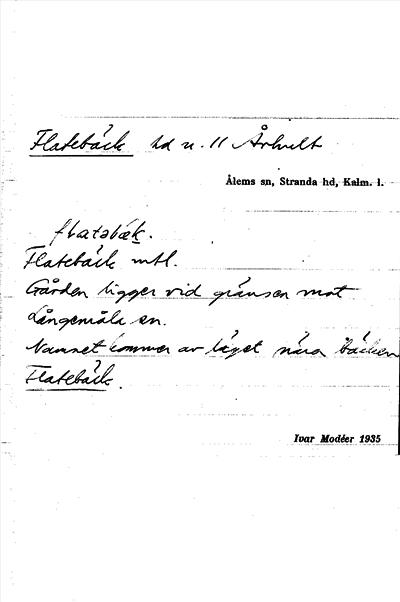 Flatebäck hd u. 11 Århult
Ålems sn, Stranda hd, Kalm. l.
flatəbæk.
Flatebäck mtl.
Gården ligger vid gränsen mot
Långemåla sn.
Namnet kommer av läget nära bäcken
Flatebäck.
Ivar Modéer 1935